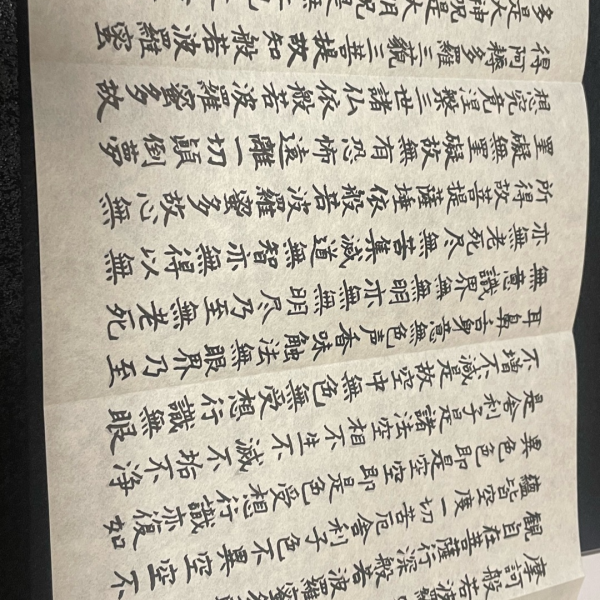 摩訶般若波羅
観自在菩薩行深般若波羅蜜多
蘊皆空度一切苦厄舎利子色不異空空不
異色色即是空空即是色受想行識亦復如
是舎利子是諸法空相不生不滅不垢不浄
不増不減是故空中無色無受想行識無眼
耳鼻舌身意無色声香味触法無眼界乃至
無意識界無無明亦無無明尽乃至無老死
亦無老死尽無苦集滅道無智亦無得以無
所得故菩提薩埵依般若波羅蜜多故心無
罣礙無罣礙故無有恐怖遠離一切顛倒夢
想究竟涅槃三世諸仏依般若波羅蜜多故
得阿耨多羅三藐三菩提故知般若波羅蜜
多是大神呪是大明呪是無